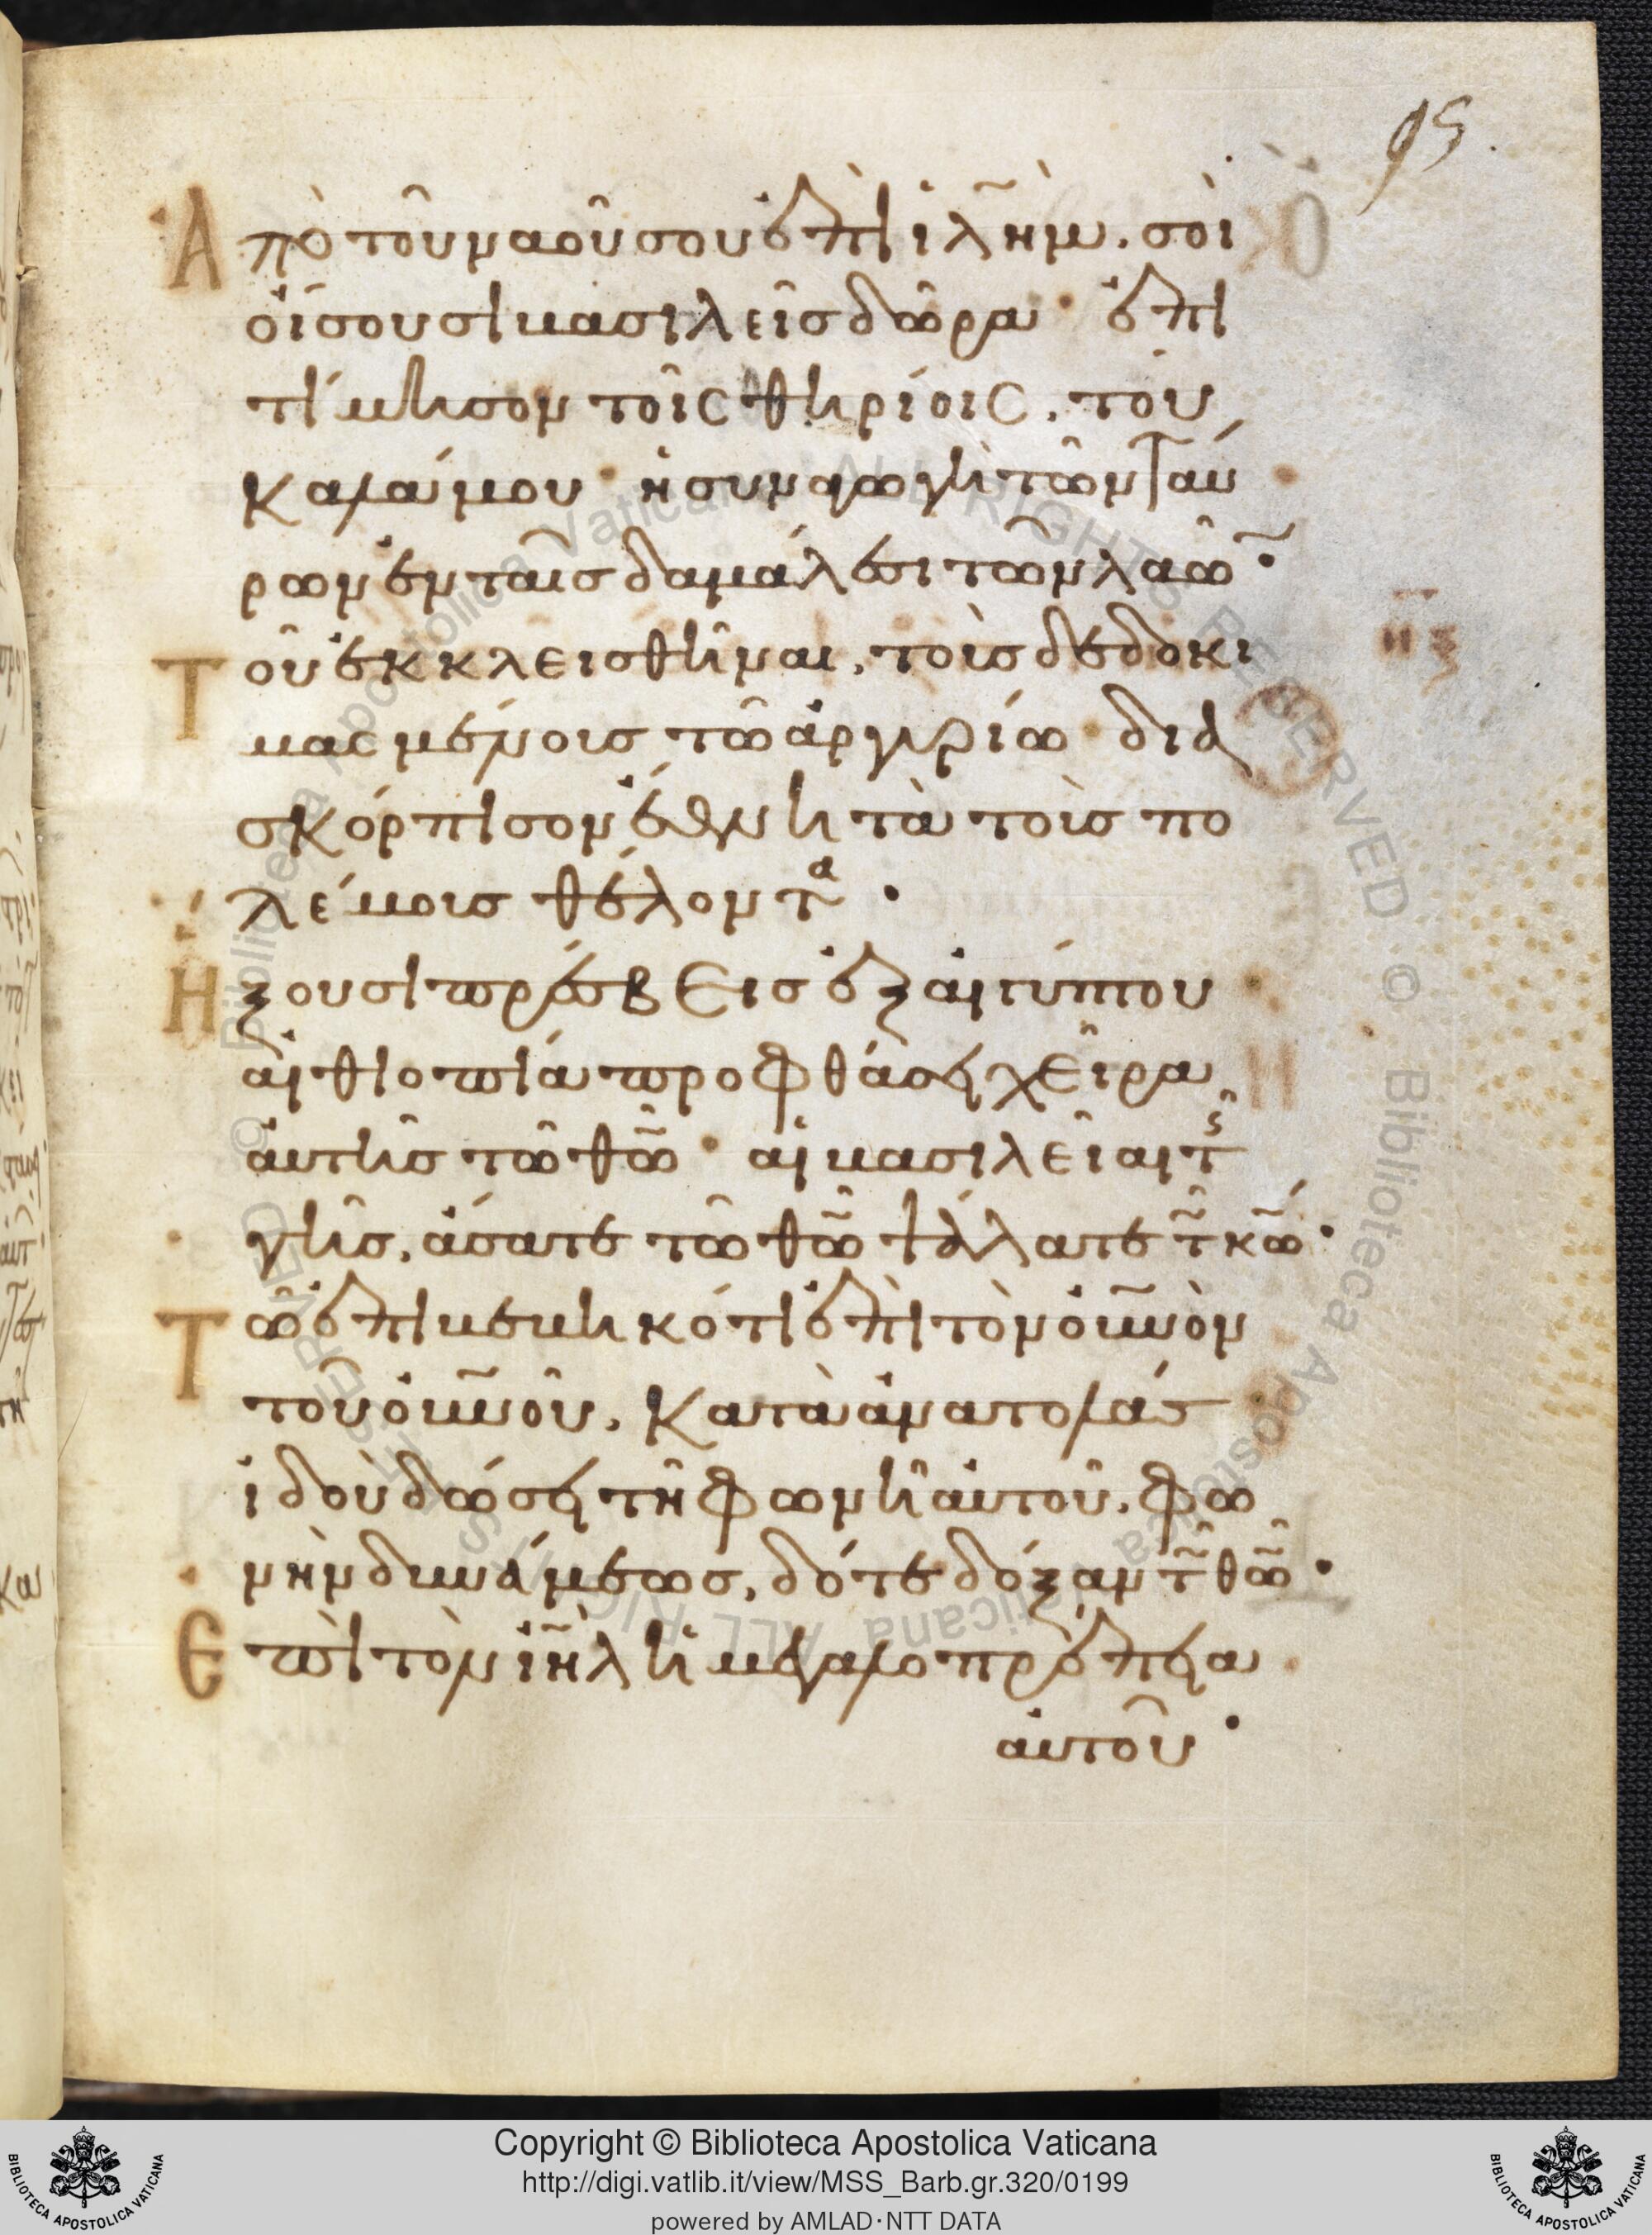 95.
Ἀπὸ τοῦ ναοῦ σου ἐπὶ ἰλ̃ημ. σοὶ
οἴσουσι βασιλεῖς δῶρα · ἐπι
τίμησον τοῖς θηρίοις. τοῦ
καλάμου · ἡ συναγωγὴ τῶν ταύ
ρων ἐν ταῖς δαμάλεσι τῶν λαῶ̃ ·
Τοῦ ἐκκλεισθῆναι, τοὺς δεδοκι
μασμένοις τῶ ἀργυρίω · δια
σκόρπισον ἔθνη τὰ τοὺς πο
λέμοις θέλοντα ·
Ἥξουσι πρέσβεις ἐξ αἰγύπτου
αἰθιοπία προφθάσει χεῖρα
αὐτῆς τῶ θῶ̃ · αἱ βασιλεῖαι τῆς
γῆς, ἄσατε τῶ θῶ̃ ψάλατε τ̃ κῶ̃ ·
Τῶ ἐπιβεβηκότι ἐπὶ τὸν οὐν̃ὸν
τοῦ οὐν̃οῦ. κατὰ ἀνατολάς
ἰδοὺ δώσει τῆ φωνῆ αὐτοῦ. φω
νὴν δυνάμεως, δότε δόξαν τ̃ θῶ̃ ·
Ἐπὶ τὸν ἰη̃λ ἡ μεγαλοπρέπεια
αὐτοῦ ·
Copyright © Biblioteca Apostolica Vaticana
http://digi.vatlib.it/view/MSS_Barb.gr.320/0199
powered by AMLAD·NTT DATA